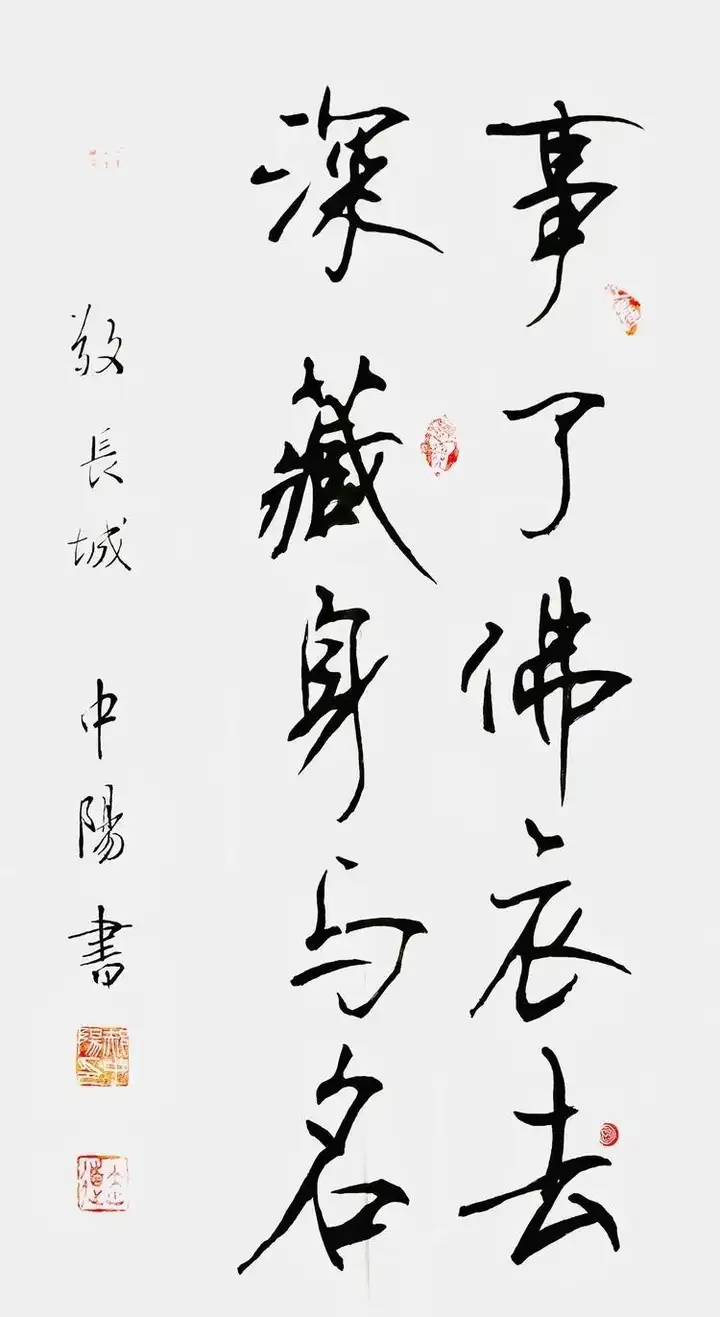 事了佛衣去
深藏身与名
敬長城 中陽書